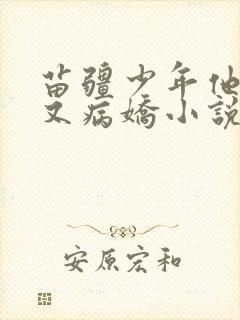 苗疆少年他
又病嬌小說
安原宏和